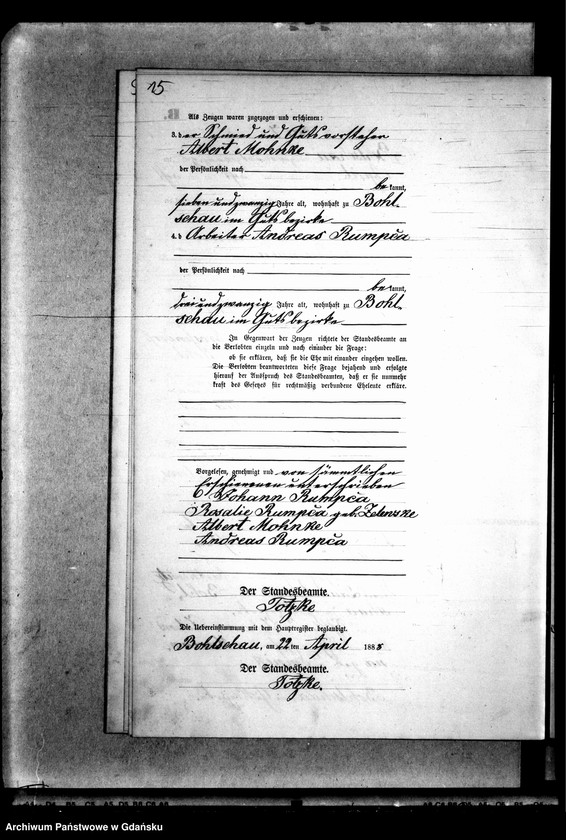 15
Als Zeugen waren zugezogen und erschienen:
3. der Schmied und Gutsvorsteher
Albert Mohnke
der Persönlichkeit nach
bekannt,
siebenundzwanzig Jahre alt, wohnhaft zu Bohl
schau im Gutsbezirke
4. d Arbeiter Andreas Rumpča
der Persönlichkeit nach
bekannt,
dreiundzwanzig Jahre alt, wohnhaft zu Bohl
schau im Gutsbezirke
In Gegenwart der Zeugen richtete der Standesbeamte an
die Verlobten einzeln und nach einander die Frage:
ob sie erklären, daß sie die Ehe mit einander eingehen wollen.
Die Verlobten beantworteten diese Frage bejahend und erfolgte
hierauf der Ausspruch des Standesbeamten, daß er sie nunmehr
kraft des Gesetzes für rechtmäßig verbundene Eheleute erkläre.
Vorgelesen, genehmigt und von sämmtlichen
Erschienenen unterschrieben
Johann Rumpča
Rosalie Rumpča geb. Zelewske
Albert Mohnke
Andreas Rumpča
Der Standesbeamte.
Totzke
Die Uebereinstimmung mit dem Hauptregister beglaubigt.
Bohlschau, am 22 ten April 1888
Der Standesbeamte.
Totzke.
Archiwum Państwowe w Gdańsku